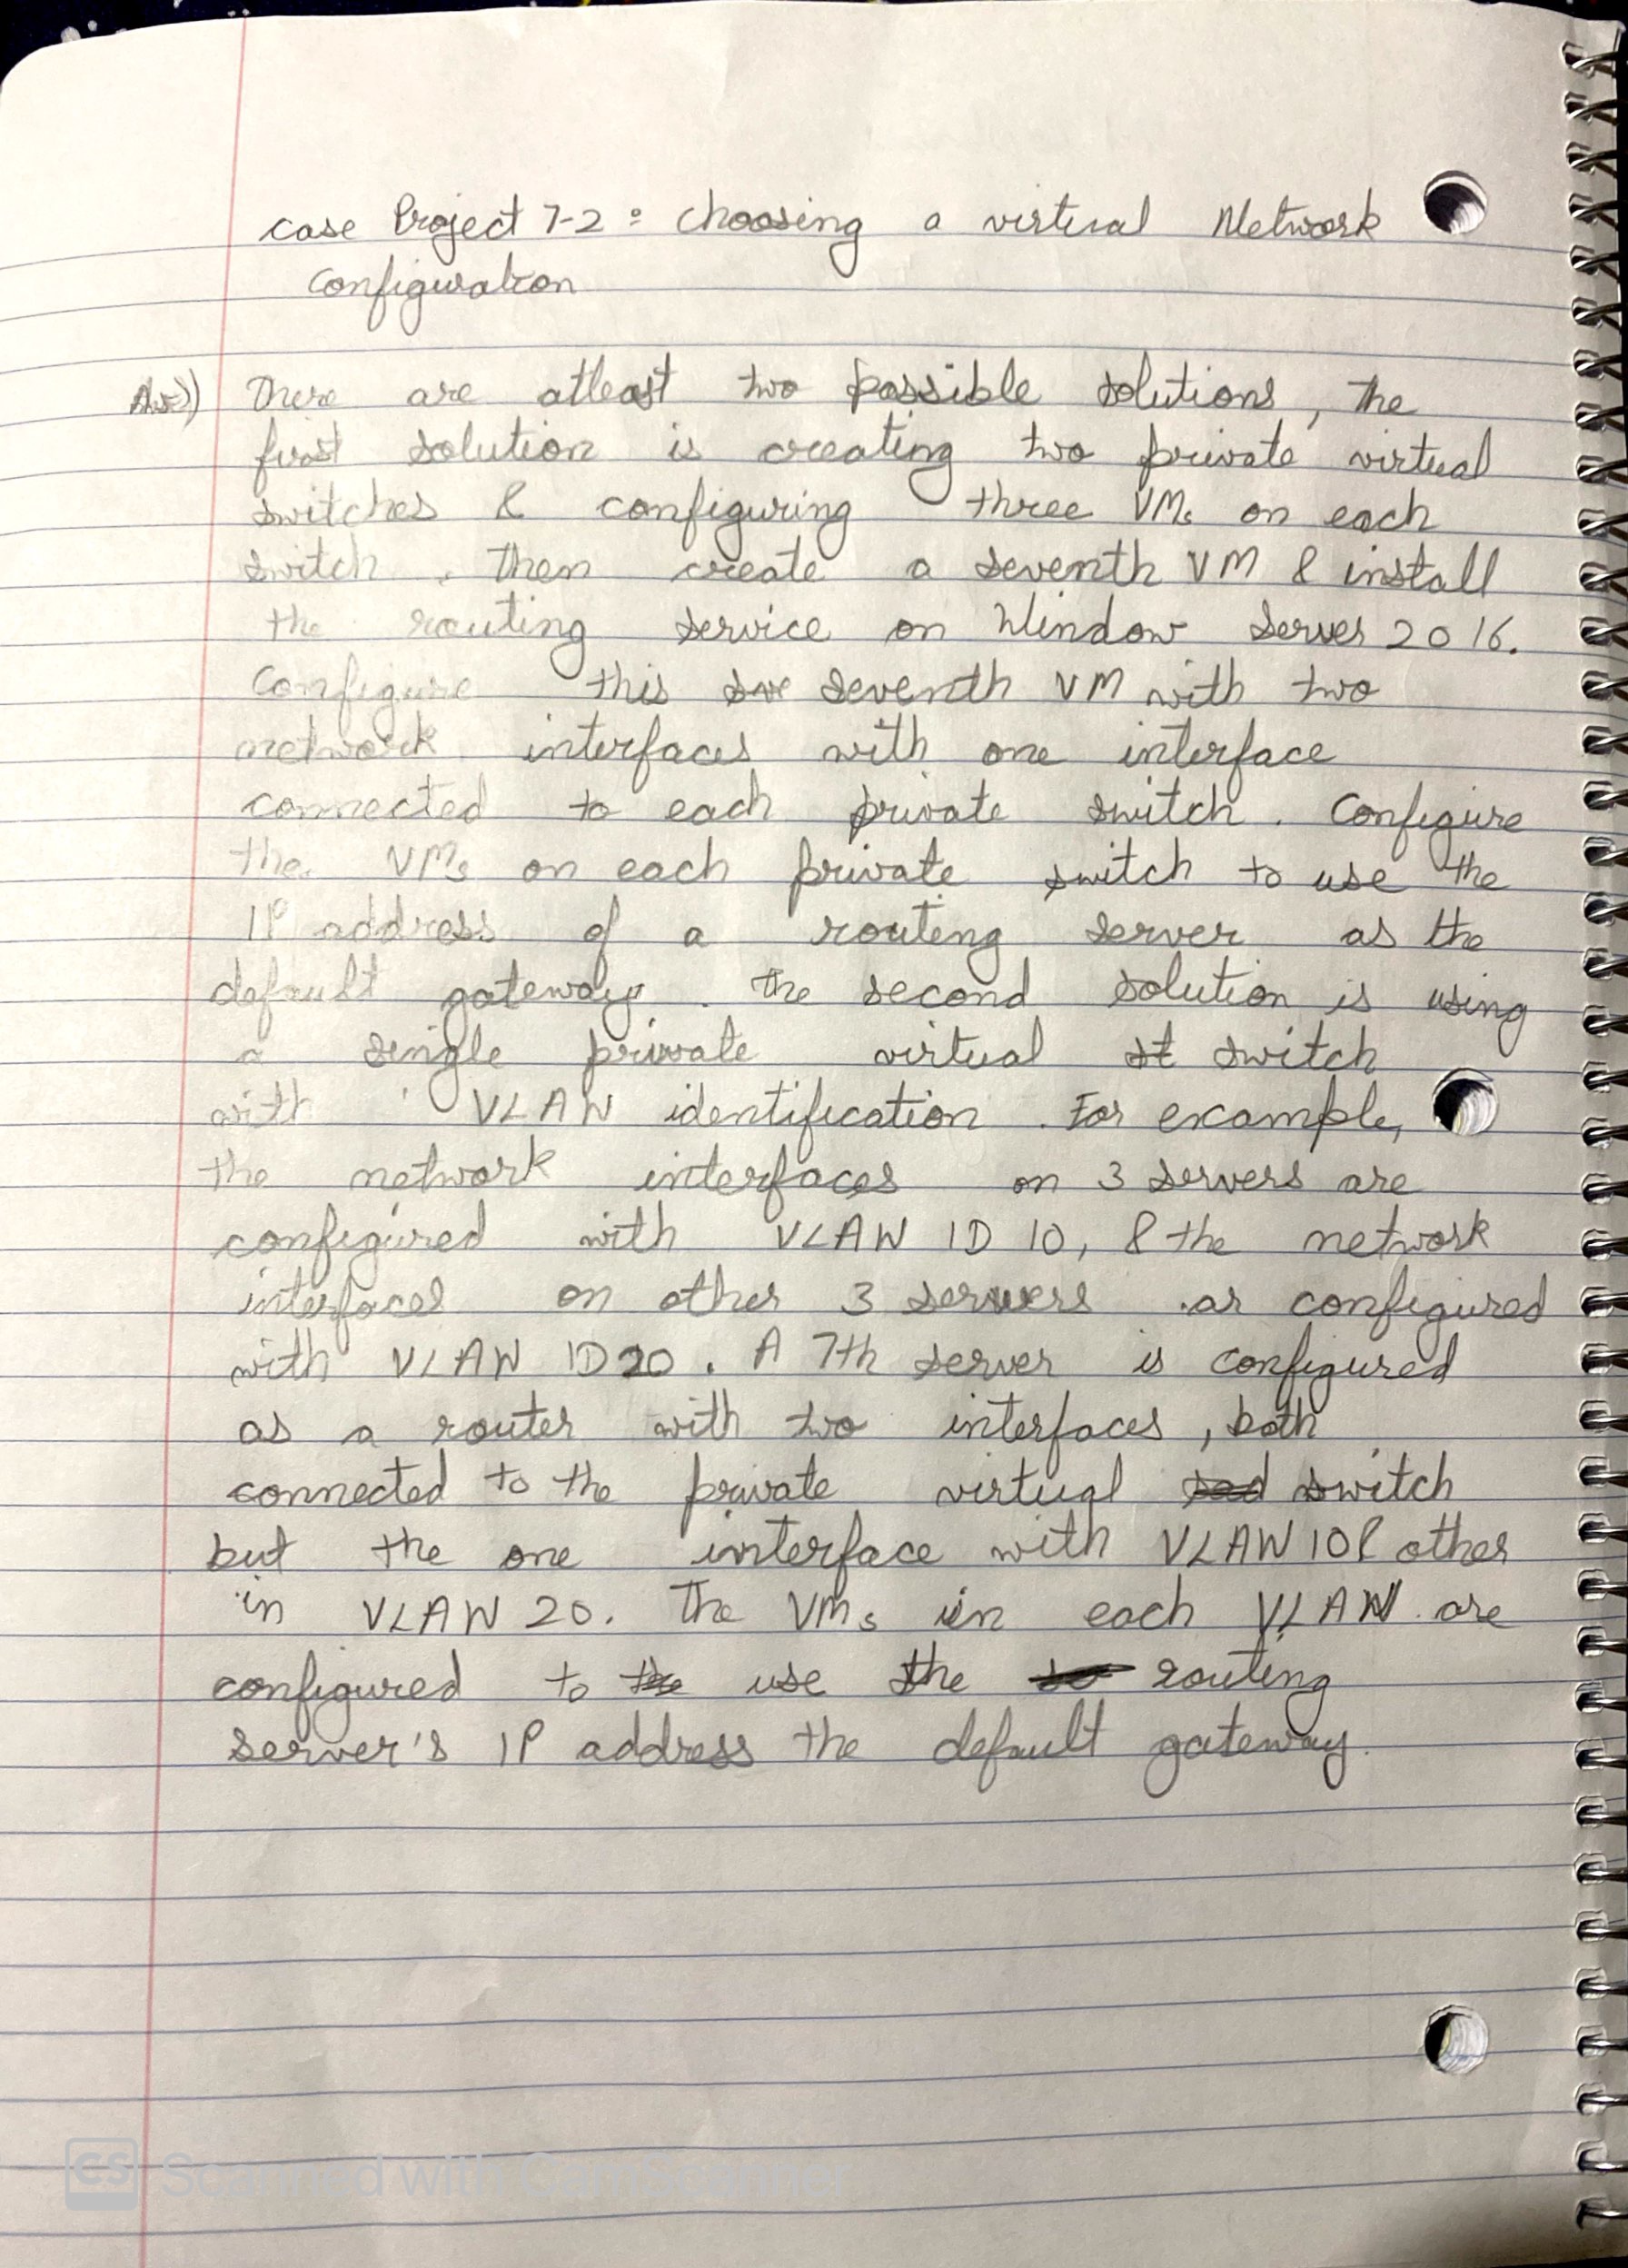 case Project 7-2 : Choosing a virtual Network
Configuration
Ans)) There are atleast two possible solutions, the
first solution is creating two private virtual
switches & configuring three VMs on each
switch. Then create a seventh VM & install
the routing service on Window Server 2016.
Configure this sve seventh VM with two
network interfaces with one interface
connected to each private switch. Configure
the VMs on each private switch to use the
IP address of a routing server as the
default gateway. The second solution is using
a single private virtual st switch
with VLAW identification. For example,
the network interfaces on 3 servers are
configured with VLAW ID 10, & the network
interfaces on other 3 servers ar configured
with VLAW ID 20. A 7th server is configured
as a router with two interfaces, both
connected to the private virtual switch
but the one interface with VLAW 10 & other
in VLAW 20. The VMs in each VLAW are
configured to the use the routing
server's IP address the default gateway.
CS Scanned with CamScanner